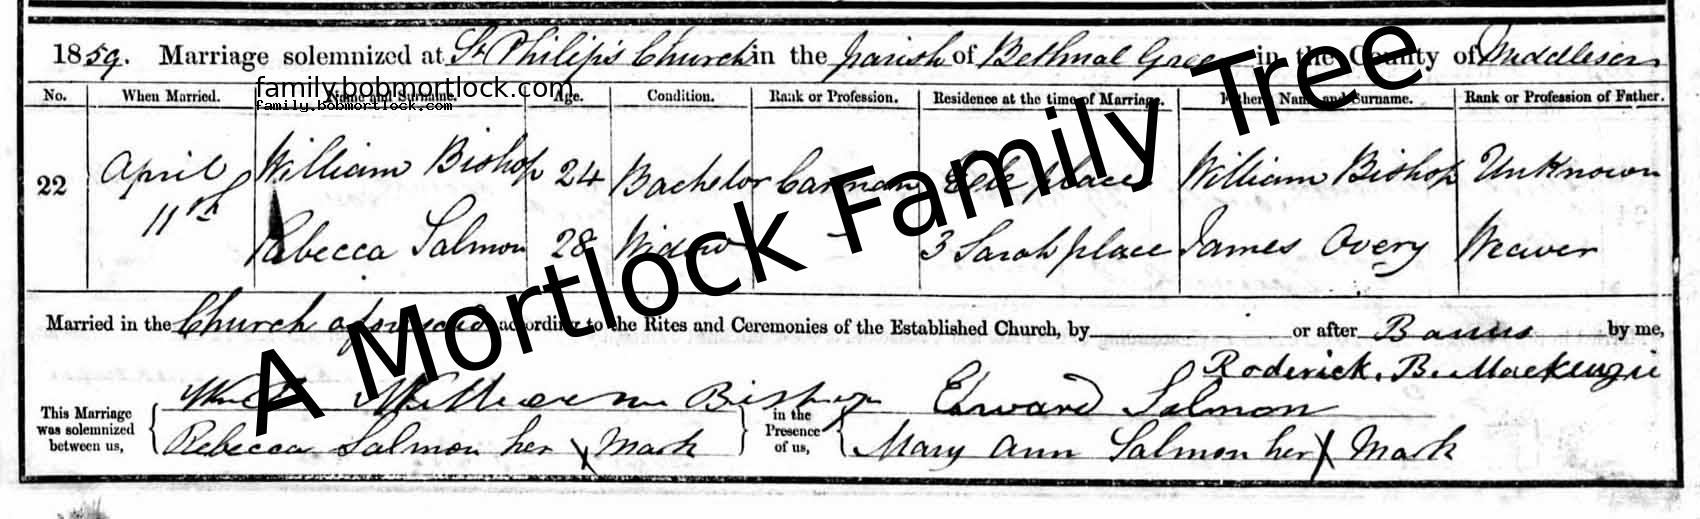 1859. Marriage solemnized at St Philip's Church in the parish of Bethnal Green in the County of Middlesex
family.bobmortlock.com
family.bobmortlock.com
No. When Married. Name and Surname. Age. Condition. Rank or Profession. Residence at the time of Marriage. Father's Name and Surname. Rank or Profession of Father.
22 April 11th William Bishop 24 Bachelor Carman place William Bishop Unknown
Rebecca Salmon 28 Widow – 3 Sarah place James Overy Weaver
A Mortlock Family Tree
Married in the Church aforesaid according to the Rites and Ceremonies of the Established Church, by or after Banns by me,
Roderick. B. Mackenzie
This Marriage was solemnized between us, William Bishop in the Presence of us, Edward Salmon
Rebecca Salmon her X Mark Mary Ann Salmon her X Mark